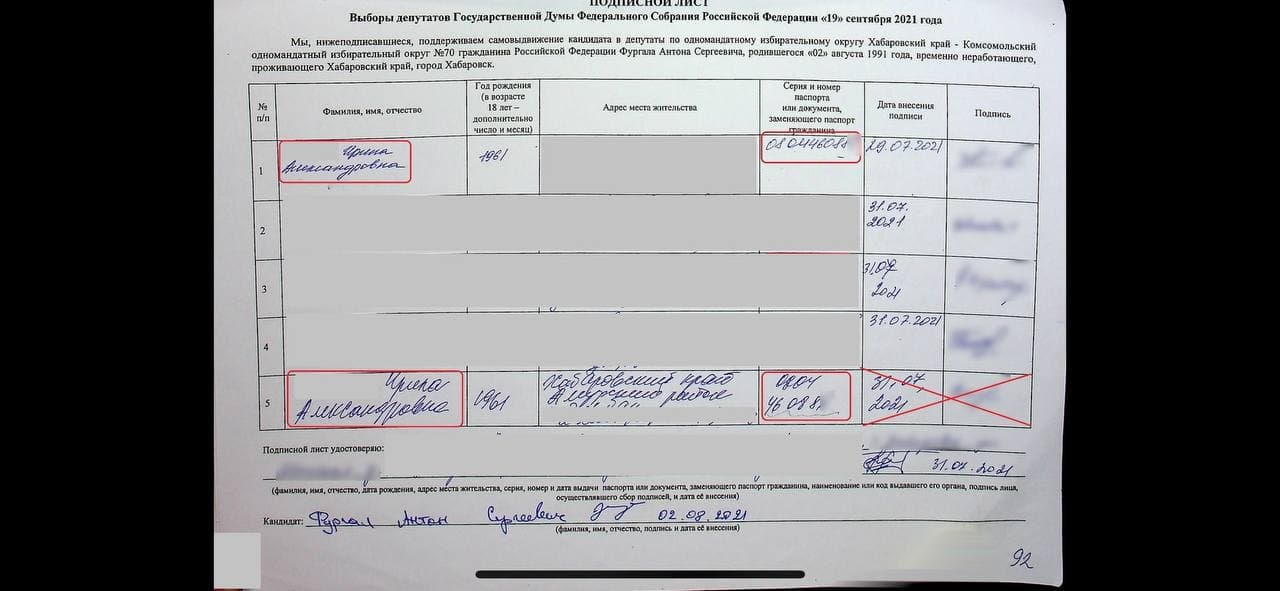 ПОДПИСНОЙ ЛИСТ
Выборы депутатов Государственной Думы Федерального Собрания Российской Федерации «19» сентября 2021 года
Мы, нижеподписавшиеся, поддерживаем самовыдвижение кандидата в депутаты по одномандатному избирательному округу Хабаровский край - Комсомольский
одномандатный избирательный округ №70 гражданина Российской Федерации Фургала Антона Сергеевича, родившегося «02» августа 1991 года, временно неработающего,
проживающего Хабаровский край, город Хабаровск.
№ п/п
Фамилия, имя, отчество
Год рождения
(в возрасте
18 лет –
дополнительно
число и месяц)
Адрес места жительства
Серия и номер
паспорта
или документа,
заменяющего паспорт
гражданина
Дата внесения
подписи
Подпись
1
Ирина
Александровна
1961
080446088
29.07.2021
2
31.07.
2021
3
31.07
2021
4
31.07.2021
5
Ирина
Александровна
1961
Хабаровский край
Амурский район
0804
46088
31.07.
2021
Подписной лист удостоверяю:
31.07.2021
(фамилия, имя, отчество, дата рождения, адрес места жительства, серия, номер и дата выдачи паспорта или документа, заменяющего паспорт гражданина, наименование или код выдавшего его органа, подпись лица,
осуществлявшего сбор подписей, и дата её внесения)
Кандидат: Фургал Антон Сергеевич 02.08.2021
(фамилия, имя, отчество, подпись и дата её внесения)
92